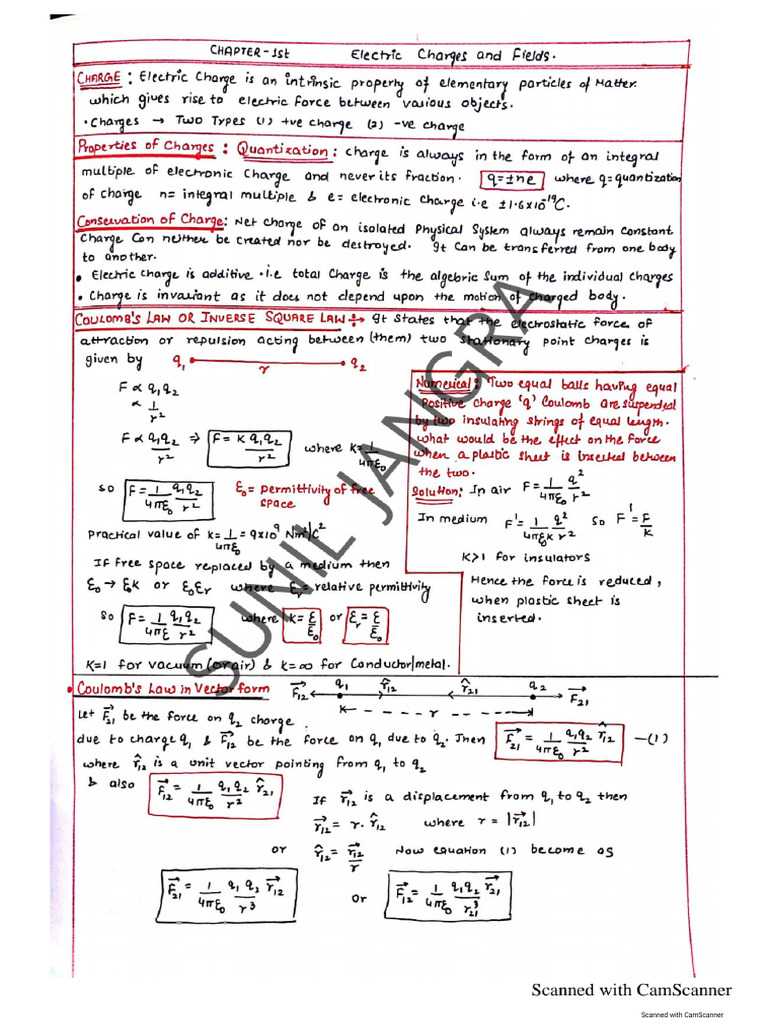 CHAPTER-1st Electric Charges and Fields.
CHARGE: Electric Charge is an intrinsic property of elementary particles of Matter.
which gives rise to electric force between various objects.
• Charges → Two Types (1) +ve charge (2) -ve charge
Properties of Charges: Quantization: Charge is always in the form of an integral
multiple of electronic Charge and never its fraction. q=±ne where q=quantization
of charge n= integral multiple & e= electronic charge i.e ±1.6x10⁻¹⁹C.
Conservation of Charge: Net charge of an isolated Physical System always remain constant
Charge Can neither be created nor be destroyed. It Can be transferred from one body
to another.
• Electric charge is additive · i.e total Charge is the algebric Sum of the individual Charges
• Charge is invaiant as it does not depend upon the motion of charged body.
COULOMB'S LAW OR INVERSE SQUARE LAW÷→ It States that the electrostatic force of
attraction or repulsion acting between (them) two stationary point charges is
given by q₁ r q₂
F ∝ q₁q₂
∝ 1/r²
F ∝ q₁q₂/r² ⇒ F = K q₁q₂/r² where k=1/4πε₀
so F = 1/4πε₀ q₁q₂/r² ε₀ = permittivity of free
space
practical value of k=1/4πε₀ = 9x10⁹ Nm²/C²
If free space replaced by a medium then
ε₀ → ε₀K or ε₀εᵣ where εᵣ=relative permittivity
So F = 1/4πε q₁q₂/r² where k=ε/ε₀ or εᵣ=ε/ε₀
K=1 for vacuum (or air) & k=∞ for Conductor/metal.
Numerical: Two equal balls having equal
Positive charge 'q' Coulomb are suspended
by two insulating strings of equal length.
what would be the effect on the force
when a plastic sheet is inserted between
the two.
Solution: In air F=1/4πε₀ q²/r²
In medium F'=1/4πε₀k q²/r² so F'=F/K
K>1 for insulators
Hence the force is reduced,
when plastic sheet is
inserted.
SUNIL JANGRA
• Coulomb's Law in Vector form F⃗₁₂ q₁ r̂₁₂ r̂₂₁ q₂ F⃗₂₁
r
Let F⃗₂₁ be the force on q₂ charge
due to charge q₁ & F⃗₁₂ be the force on q₁ due to q₂. Then F⃗₂₁ = 1/4πε₀ q₁q₂/r² r̂₁₂ —(1)
where r̂₁₂ is a unit vector pointing from q₁ to q₂
& also F⃗₁₂ = 1/4πε₀ q₁q₂/r² r̂₂₁
If r⃗₁₂ is a displacement from q₁ to q₂ then
r⃗₁₂ = r. r̂₁₂ where r = |r⃗₁₂|
or r̂₁₂ = r⃗₁₂/r Now equation (1) become as
F⃗₂₁ = 1/4πε₀ q₁q₂/r³ r⃗₁₂ or F⃗₁₂ = 1/4πε₀ q₁q₂/r₂₁³ r⃗₂₁
Scanned with CamScanner
Scanned with CamScanner